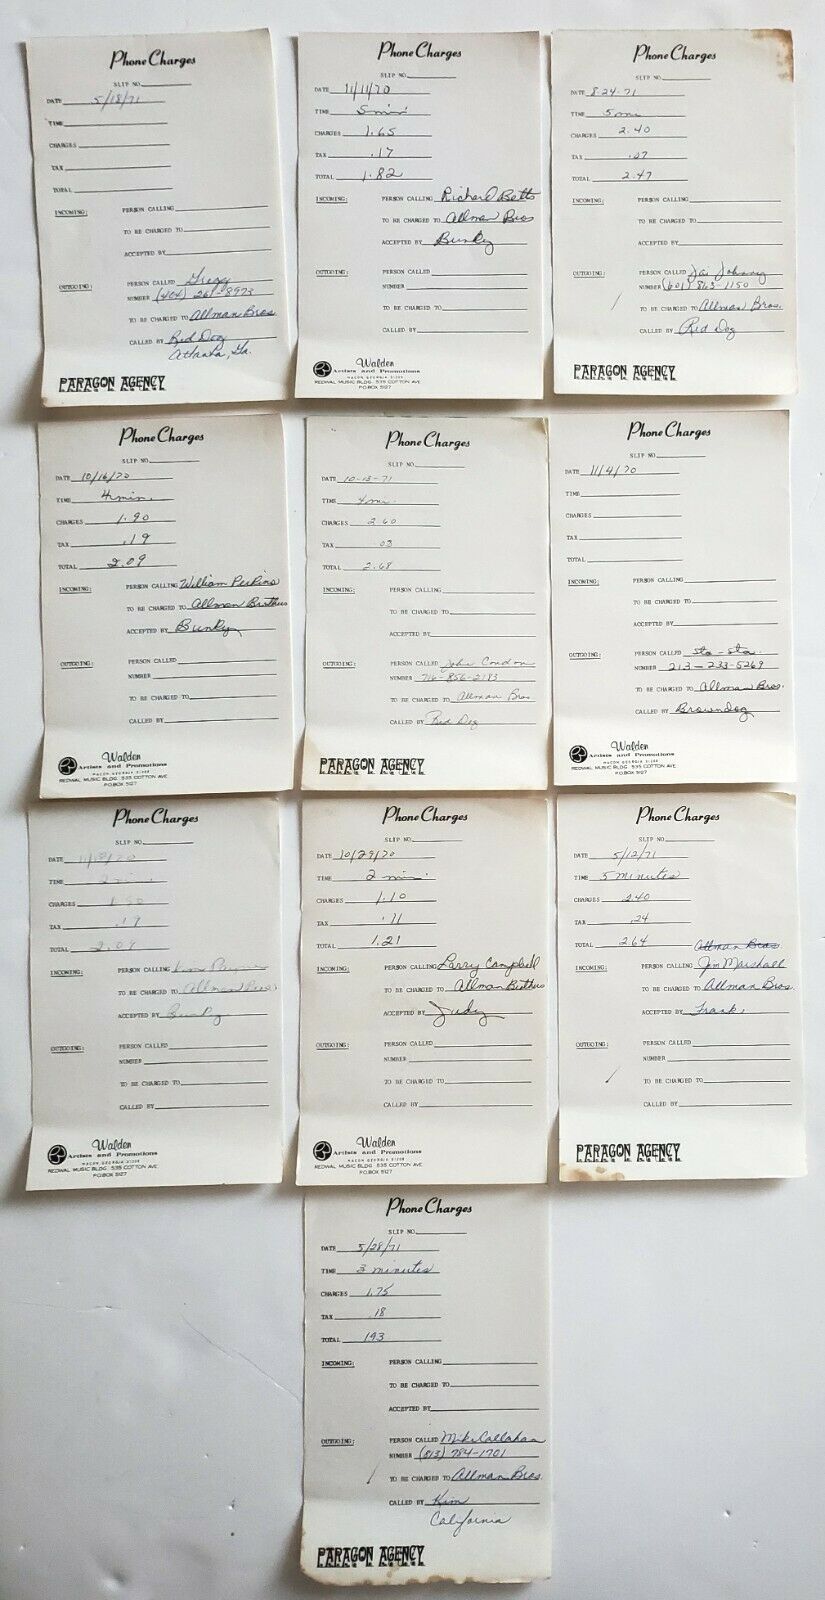 Phone Charges
SLIP NO.
DATE 5/18/71
TIME
CHARGES
TAX
TOTAL
INCOMING: PERSON CALLING
TO BE CHARGED TO
ACCEPTED BY
OUTGOING: PERSON CALLED Gregg
NUMBER (404) 261-8973
TO BE CHARGED TO Allman Bros.
CALLED BY Red Dog
Atlanta, Ga.
PARAGON AGENCY
Phone Charges
SLIP NO.
DATE 11/11/70
TIME 5 min
CHARGES 1.65
TAX .17
TOTAL 1.82
INCOMING: PERSON CALLING Richard Betts
TO BE CHARGED TO Allman Bros
ACCEPTED BY Bunky
OUTGOING: PERSON CALLED
NUMBER
TO BE CHARGED TO
CALLED BY
Walden
Artists and Promotions
MACON GEORGIA 31208
REDWAL MUSIC BLDG. 535 COTTON AVE
P.O.BOX 5127
Phone Charges
SLIP NO.
DATE 8-24-71
TIME 5 mn
CHARGES 2.40
TAX .27
TOTAL 2.47
INCOMING: PERSON CALLING
TO BE CHARGED TO
ACCEPTED BY
OUTGOING: PERSON CALLED Jai Johnny
NUMBER (601) 863-1150
TO BE CHARGED TO Allman Bros.
CALLED BY Red Dog
PARAGON AGENCY
Phone Charges
SLIP NO.
DATE 10/16/70
TIME 4 min.
CHARGES 1.90
TAX .19
TOTAL 2.09
INCOMING: PERSON CALLING William Perkins
TO BE CHARGED TO Allman Brothers
ACCEPTED BY Bunky
OUTGOING: PERSON CALLED
NUMBER
TO BE CHARGED TO
CALLED BY
Walden
Artists and Promotions
MACON GEORGIA 31208
REDWAL MUSIC BLDG. 535 COTTON AVE
P.O.BOX 5127
Phone Charges
SLIP NO.
DATE 10-13-71
TIME 4 mn.
CHARGES 2.60
TAX .03
TOTAL 2.68
INCOMING: PERSON CALLING
TO BE CHARGED TO
ACCEPTED BY
OUTGOING: PERSON CALLED John Condon
NUMBER 716-856-2183
TO BE CHARGED TO Allman Bros
CALLED BY Red Dog
PARAGON AGENCY
Phone Charges
SLIP NO.
DATE 11/4/70
TIME
CHARGES
TAX
TOTAL
INCOMING: PERSON CALLING
TO BE CHARGED TO
ACCEPTED BY
OUTGOING: PERSON CALLED sta-sta.
NUMBER 213-233-5269
TO BE CHARGED TO Allman Bros.
CALLED BY Browndog
Walden
Artists and Promotions
MACON GEORGIA 31208
REDWAL MUSIC BLDG. 535 COTTON AVE
P.O.BOX 5127
Phone Charges
SLIP NO.
DATE
TIME
CHARGES
TAX .19
TOTAL 2.09
INCOMING: PERSON CALLING
TO BE CHARGED TO Allman Bros.
ACCEPTED BY Bunky
OUTGOING: PERSON CALLED
NUMBER
TO BE CHARGED TO
CALLED BY
Walden
Artists and Promotions
MACON GEORGIA 31208
REDWAL MUSIC BLDG. 535 COTTON AVE
P.O.BOX 5127
Phone Charges
SLIP NO.
DATE 10/29/70
TIME 2 min.
CHARGES 1.10
TAX .11
TOTAL 1.21
INCOMING: PERSON CALLING Larry Campbell
TO BE CHARGED TO Allman Brothers
ACCEPTED BY Judy
OUTGOING: PERSON CALLED
NUMBER
TO BE CHARGED TO
CALLED BY
Walden
Artists and Promotions
MACON GEORGIA 31208
REDWAL MUSIC BLDG. 535 COTTON AVE
P.O.BOX 5127
Phone Charges
SLIP NO.
DATE 5/12/71
TIME 5 minutes
CHARGES 2.40
TAX .24
TOTAL 2.64 Allman Bros.
INCOMING: PERSON CALLING Jim Marshall
TO BE CHARGED TO Allman Bros.
ACCEPTED BY Frank
OUTGOING: PERSON CALLED
NUMBER
TO BE CHARGED TO
CALLED BY
PARAGON AGENCY
Phone Charges
SLIP NO.
DATE 5/28/71
TIME 3 minutes
CHARGES 1.75
TAX .18
TOTAL 193
INCOMING: PERSON CALLING
TO BE CHARGED TO
ACCEPTED BY
OUTGOING: PERSON CALLED Mike Callahan
NUMBER (813) 784-1701
TO BE CHARGED TO Allman Bros.
CALLED BY Kim
California
PARAGON AGENCY